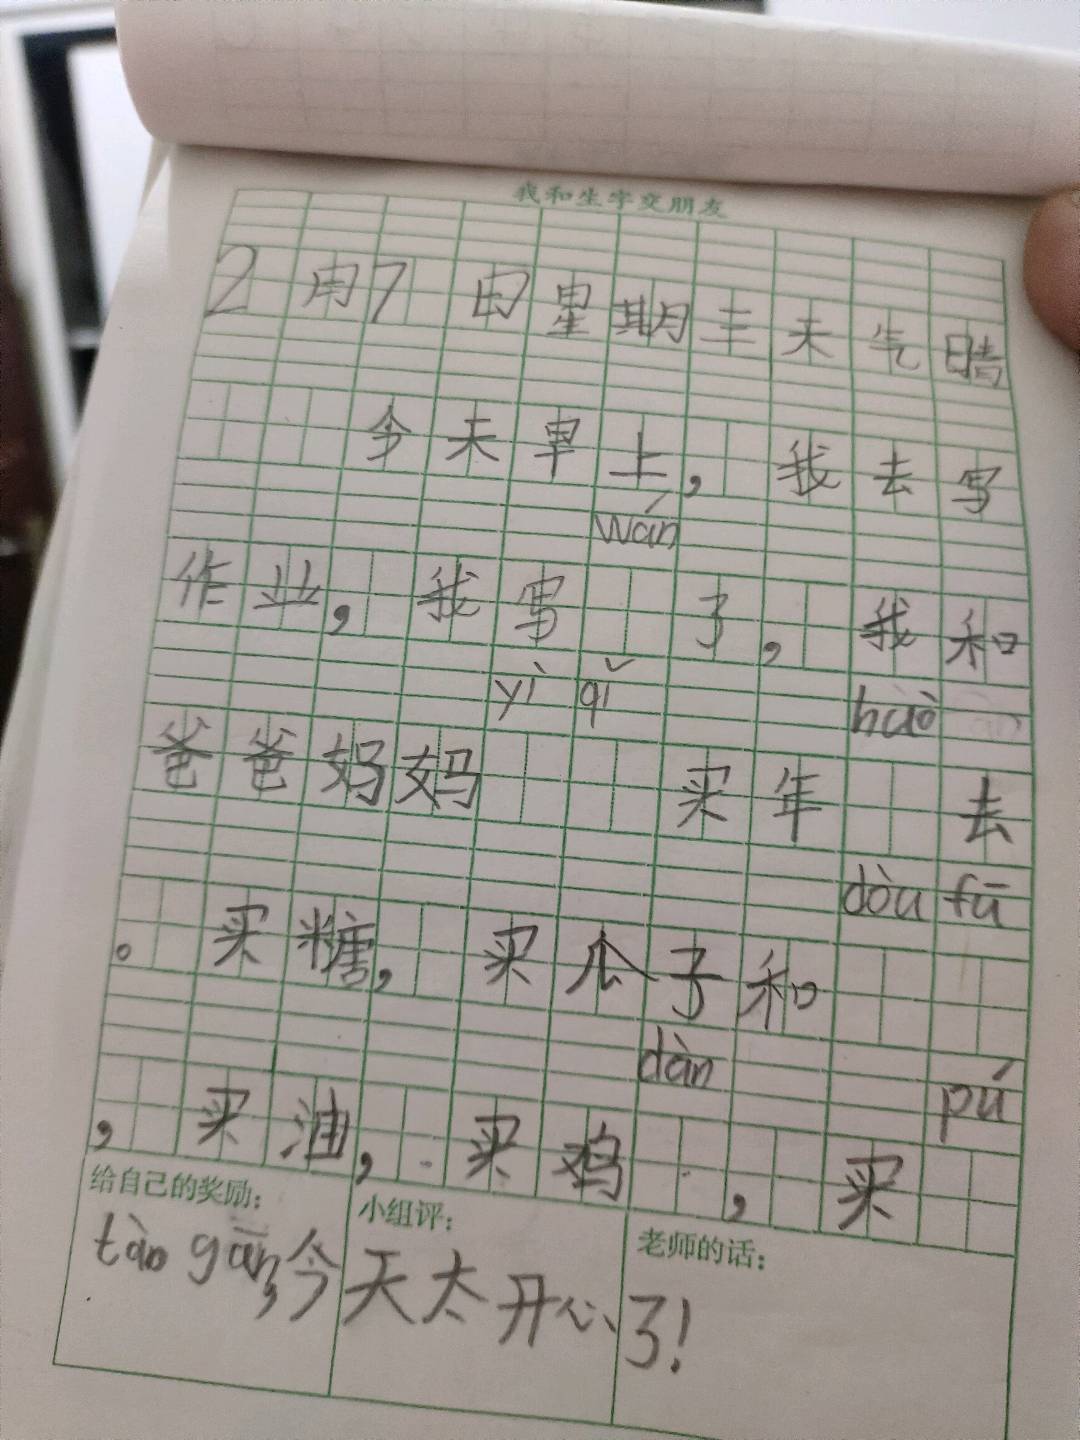 我和生字交朋友
2月7日星期三天气晴
今天早上，我去写
wán
作业，我写 了，我和
yì qǐ huò
爸爸妈妈 买年 去
dòu fū
。买糖，买瓜子和
dàn pú
，买油，买鸡 ，买
给自己的奖励： 小组评： 老师的话：
tào gān，今天太开心了！